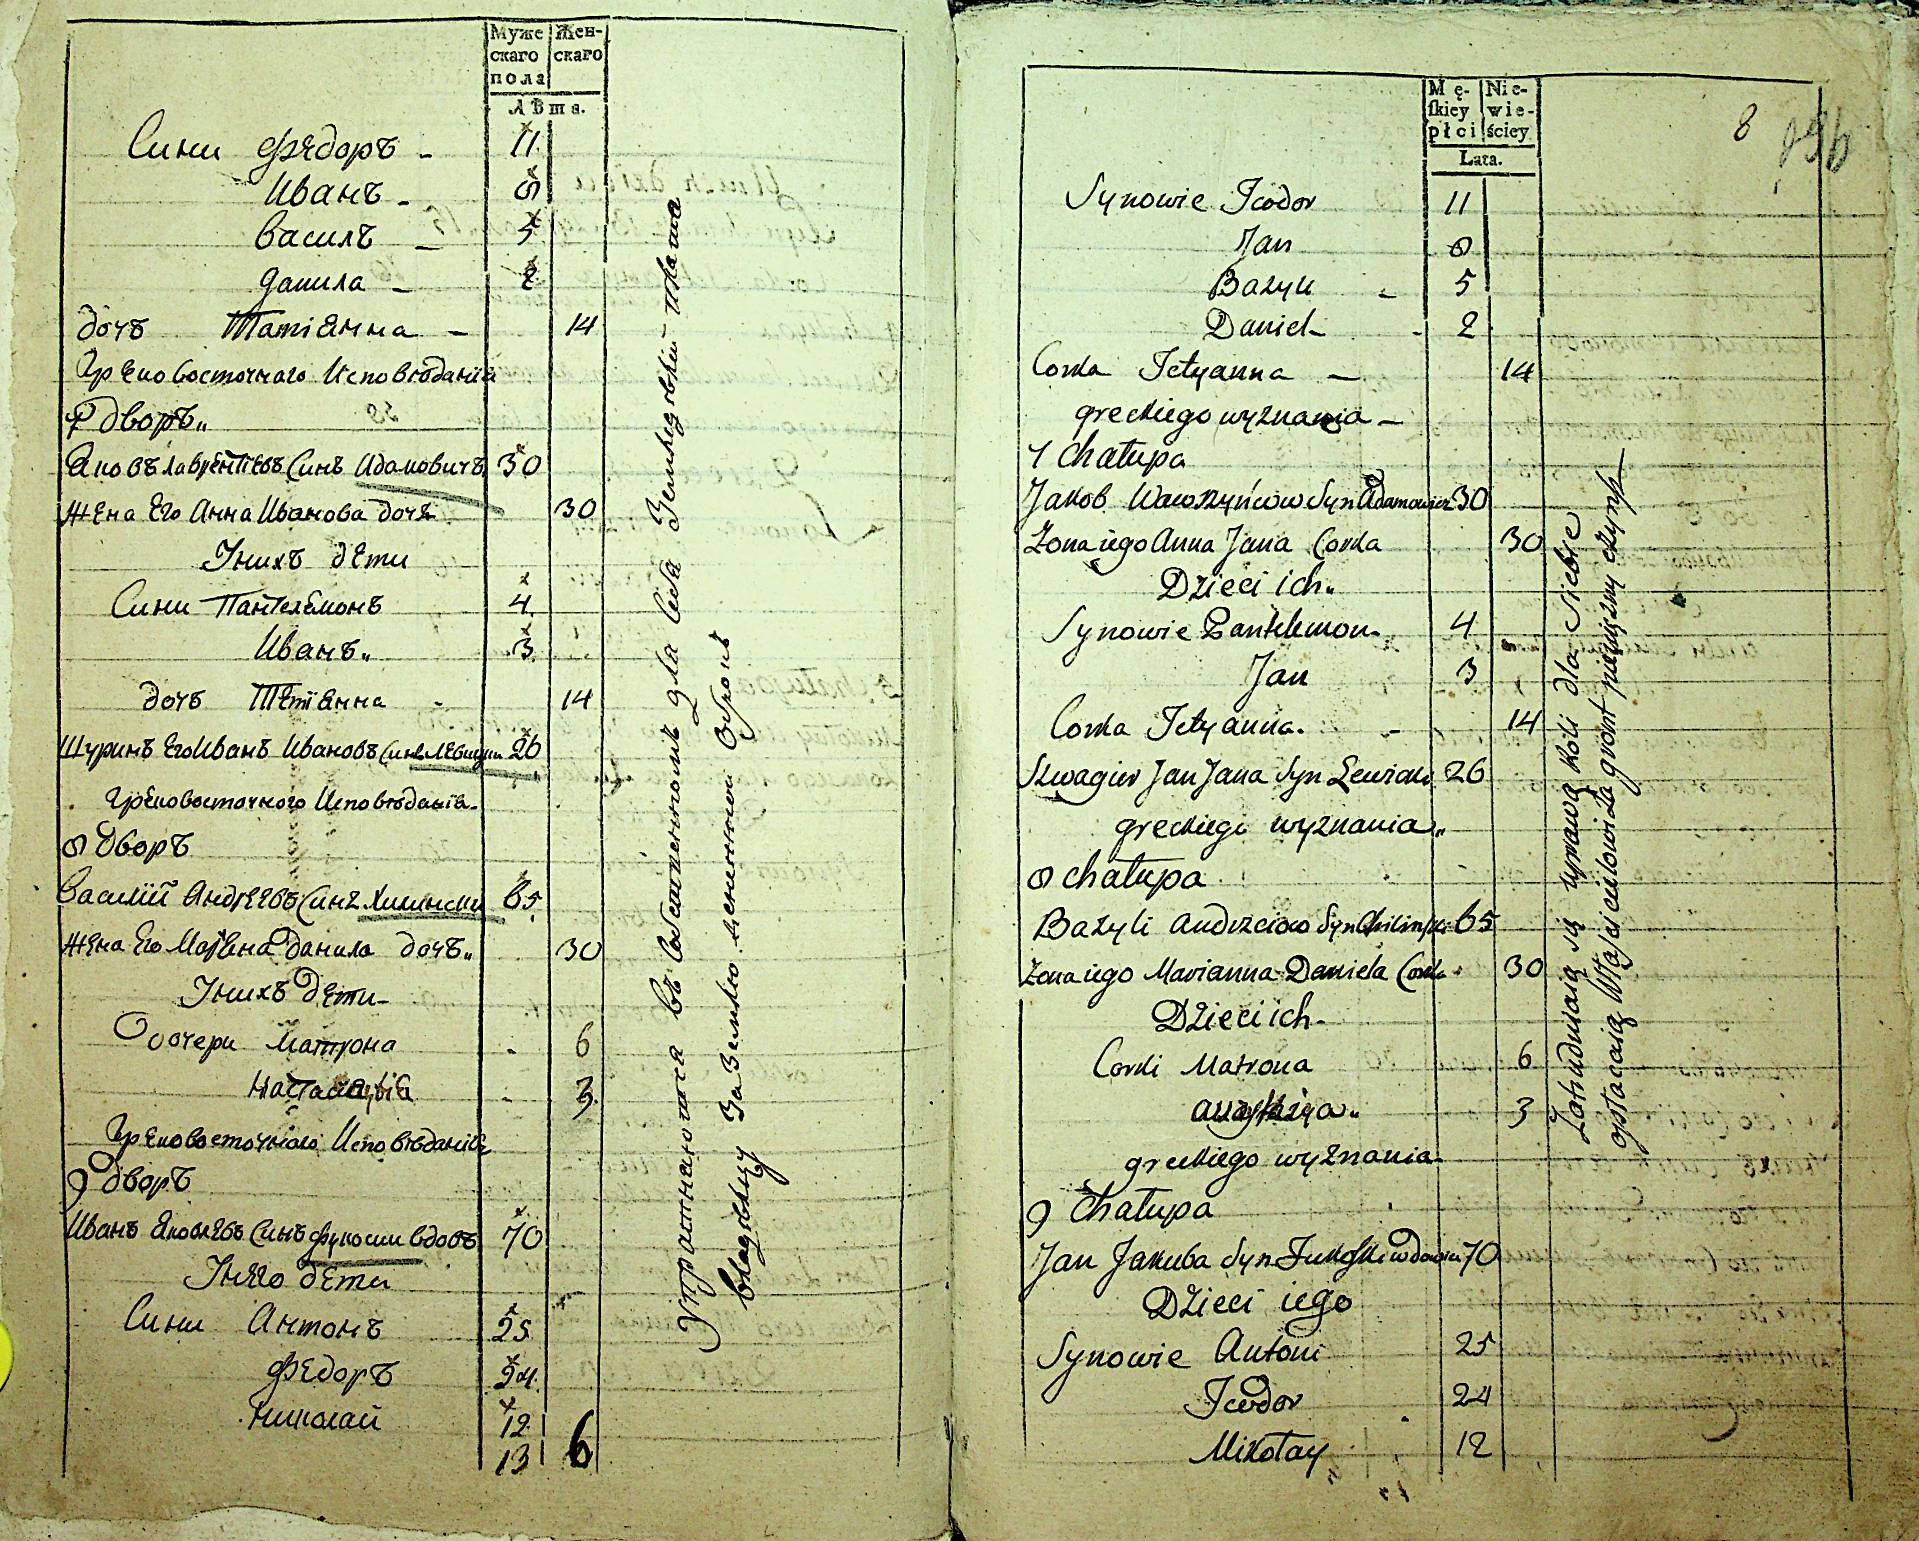 Муже Жен-
скаго скаго
пола
Лѣта.
Сини Фѣдоръ - 11
Иванъ - 8
Василъ - 5
Данила - 2
Дочъ Татіанна - 14
Грековосточнаго Исповѣданія
7 Дворъ„
Яковъ Лаврентіевъ Синъ Адамовичъ 30
Жена Его Анна Иванова дочъ 30
Унихъ дети
Сини Пантелемонъ 4
Иванъ„ 3
Дочъ Тетіанна - 14
Шуринъ Его Иванъ Ивановъ Синъ 26
Грековосточного Исповѣданія.
8 Дворъ
Василій Андреевъ Синъ Хилински 65
Жена Его Марѣна Данила дочъ„ 30
Унихъ дети
Дочери Матрона 6
3
Грековосточного Исповѣданія
9 Дворъ
Иванъ Яковлевъ Синъ вдовъ 70
Унего дети
Сини Антонъ 25
Федоръ 24
Николай 12
13 6
Упражнаются для себа
владѣлцу Заземлю оброкъ
8
Mę- Nie-
skiey wie-
płci ściey
Lata.
Synowie Teodor 11
Jan 8
Bazyli - 5
Daniel - 2
Corka Tetyanna - 14
greckiego wyznania -
7 Chałupa
Jakob Wawrzyńcow Syn Adamowicz 30
Zona iego Anna Jana Corka 30
Dzieci ich„
Synowie Pantelemon 4
Jan 3
Corka Tetyanna. - 14
Szwagier Jan Jana Syn 26
greckiego wyznania„
8 chałupa
Bazyli Andrzeiow Syn Chilinski 65
Zona iego Marianna Daniela Corka 30
Dzieci ich-
Corki Matrona 6
3
greckiego wyznania-
9 Chałupa
Jan Jakuba Syn wdowiec 70
Dzieci iego
Synowie Antoni 25
Teodor 24
Mikołay 12
Zatrudniaią się uprawą Roli dla siebie
opłacaią Właścicielowi za gront pieniężny czynsz